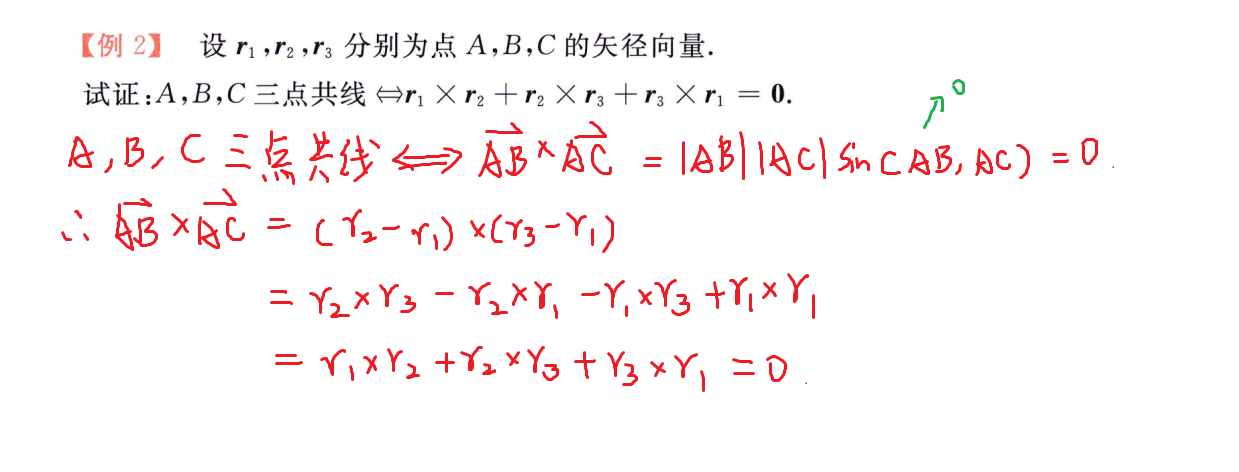 【例 2】 设 r₁,r₂,r₃ 分别为点 A,B,C 的矢径向量.
试证:A,B,C 三点共线 ⇔r₁ × r₂ + r₂ × r₃ + r₃ × r₁ = 0.
0
A, B, C 三点共线 ⟺ AB × AC = |AB||AC| sin(AB, AC) = 0.
∴ AB × AC = (r₂ - r₁) × (r₃ - r₁)
= r₂ × r₃ - r₂ × r₁ - r₁ × r₃ + r₁ × r₁
= r₁ × r₂ + r₂ × r₃ + r₃ × r₁ = 0.